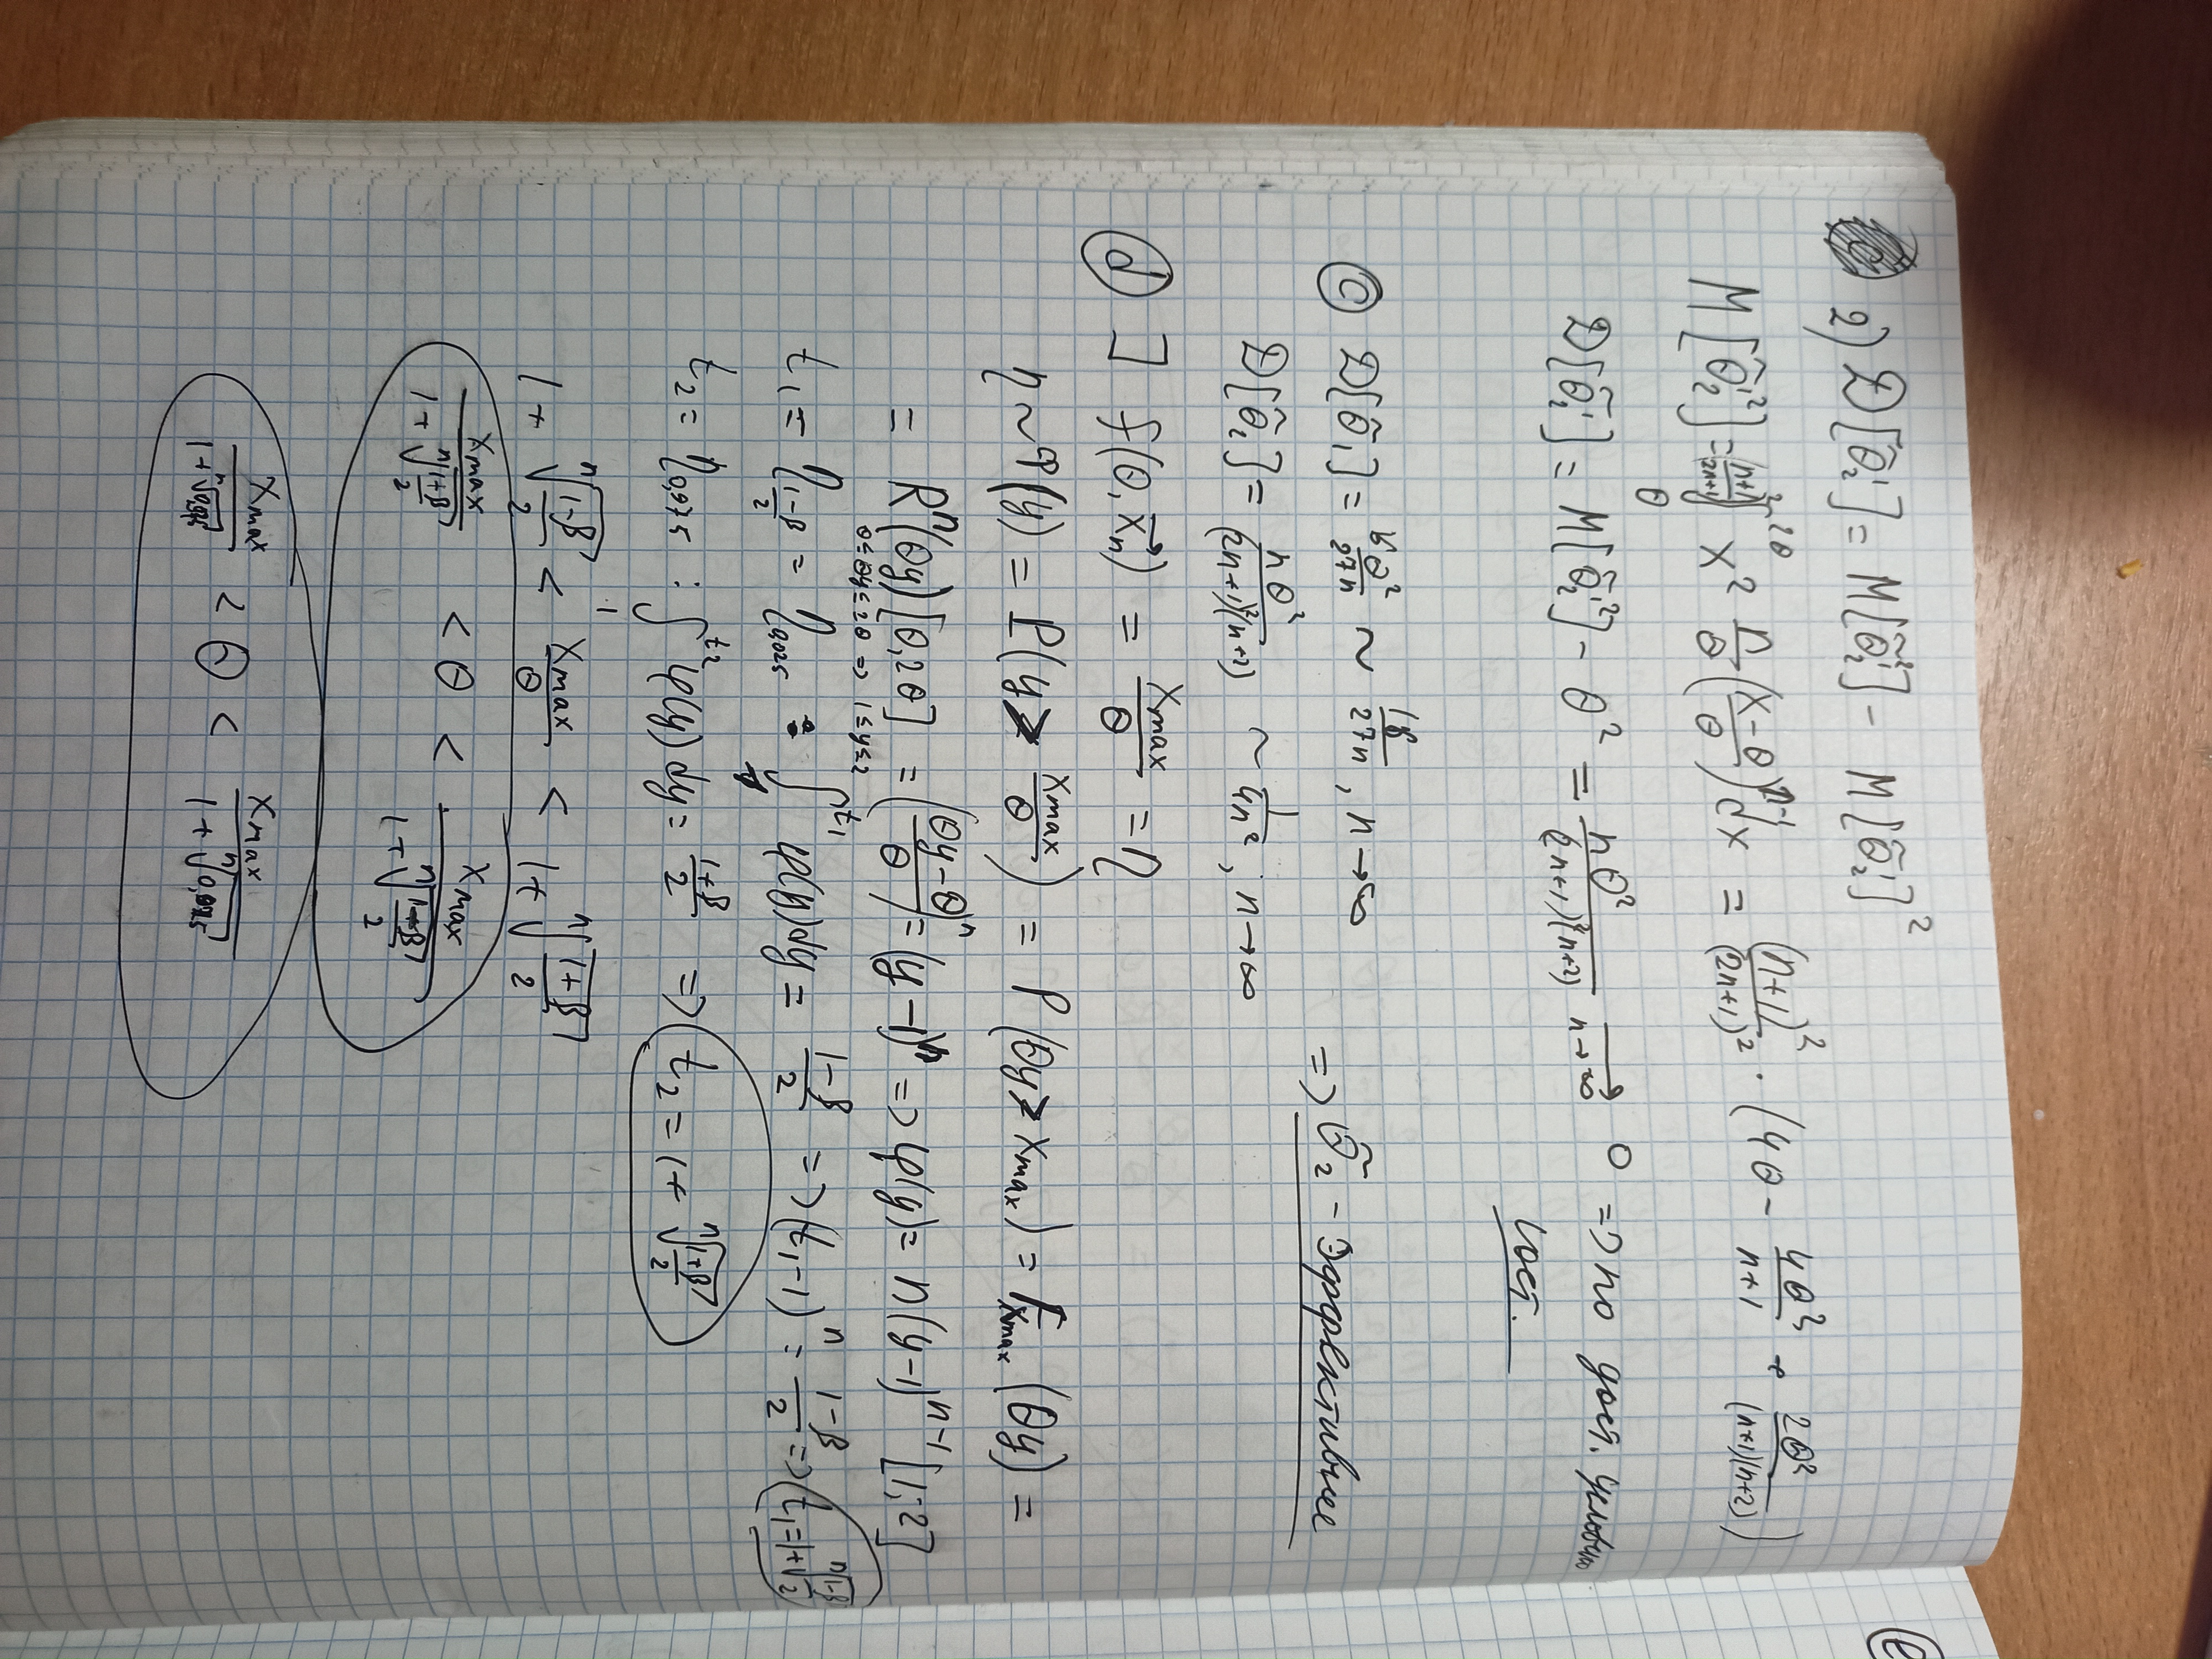 2) D[θ̃₂'] = M[θ̃₂'²] - M[θ̃₂']²
M[θ̃₂'²] = ((n+1)/(2n+1))² ∫_θ^{2θ} x² n/θ ((x-θ)/θ)^{n-1} dx = (n+1)²/(2n+1)² · (4θ - 4θ²/(n+1) + 2θ²/((n+1)(n+2)))
D[θ̃₂'] = M[θ̃₂'²] - θ² = nθ²/((2n+1)²(n+2)) →_{n→∞} 0 => по дост. условию
сост.
(c) D[θ̃₁] = θ²/27n ~ /27n, n→∞
=> θ̃₂ - эффективнее
D[θ̃₂] = nθ²/((2n+1)²(n+2)) ~ 1/4n²; n→∞
(d) ] f(θ, x⃗ₙ) = xmax/θ = η
η ~ Φ(y) = P(y > xmax/θ) = P(θy > xmax) = F_{xmax}(θy) =
= Rⁿ(θy)[θ,2θ] = ((θy-θ)/θ)ⁿ = (y-1)ⁿ => φ(y) = n(y-1)^{n-1} [1;2]
θ≤θy≤2θ => 1≤y≤2
t₁ = η_{(1-β)/2} = η_{0,025} : ∫_1^{t₁} φ(y)dy = (1-β)/2 => (t₁-1)ⁿ = (1-β)/2 => t₁ = 1+ⁿ√((1-β)/2)
t₂ = η_{0,975} : ∫_1^{t₂} φ(y)dy = (1+β)/2 => t₂ = 1+ ⁿ√((1+β)/2)
1+ ⁿ√((1-β)/2) < xmax/θ < 1+ ⁿ√((1+β)/2)
xmax/(1+ ⁿ√((1+β)/2)) < θ < xmax/(1+ ⁿ√((1-β)/2))
xmax/(1+ ⁿ√0,975) < θ < xmax/(1+ ⁿ√0,025)